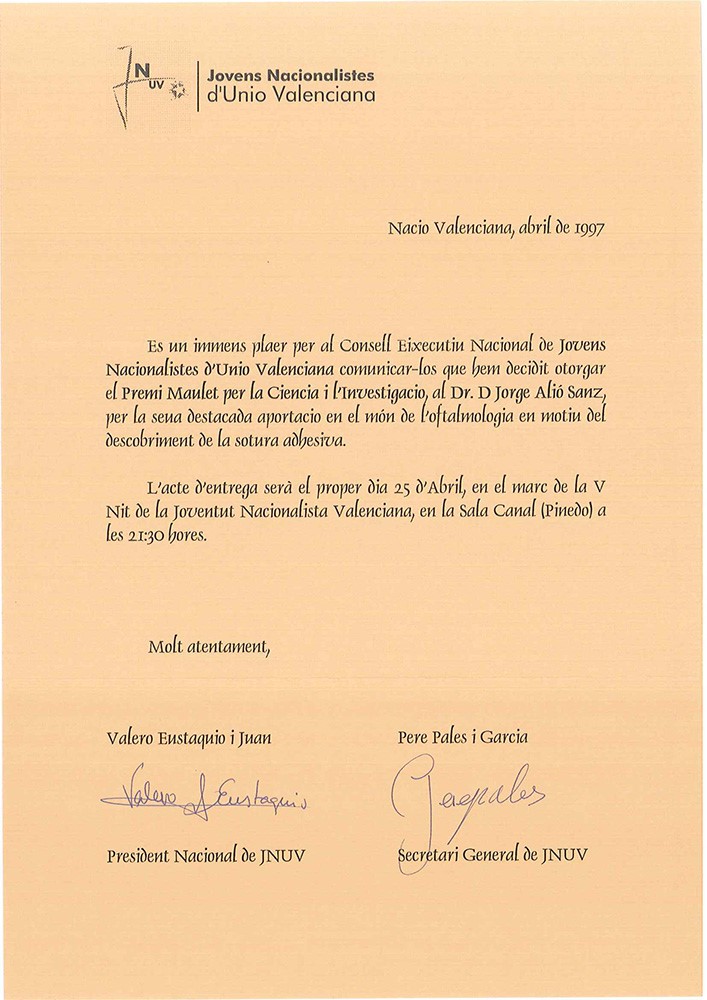 N
UV
Jovens Nacionalistes
d'Unio Valenciana
Nacio Valenciana, abril de 1997
Es un immens plaer per al Consell Eixecutiu Nacional de Jovens
Nacionalistes d'Unio Valenciana comunicar-los que hem decidit otorgar
el Premi Maulet per la Ciencia i l'Investigacio, al Dr. D Jorge Alió Sanz,
per la seua destacada aportacio en el món de l'oftalmologia en motiu del
descobriment de la sotura adhesiva.
L'acte d'entrega serà el proper dia 25 d'Abril, en el marc de la V
Nit de la Joventut Nacionalista Valenciana, en la Sala Canal (Pinedo) a
les 21:30 hores.
Molt atentament,
Valero Eustaquio i Juan
Pere Pales i Garcia
Valero J Eustaquio
President Nacional de JNUV
Secretari General de JNUV